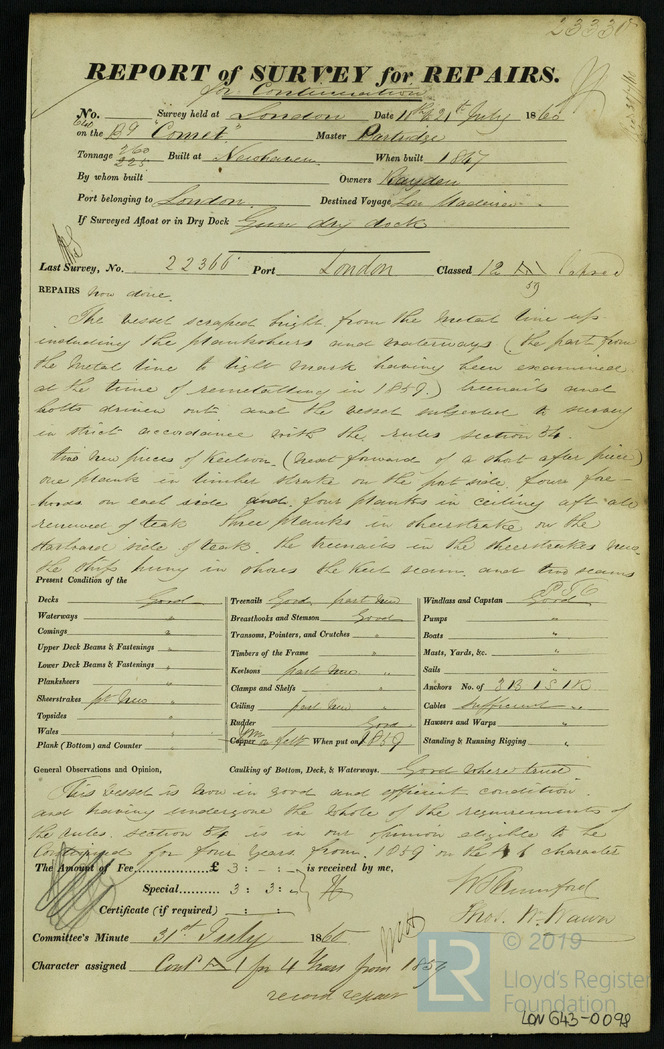 23330
REPORT of SURVEY for REPAIRS.
for Continuation
No. Survey held at London Date 11th & 21st July 1860
on the Bg "Comet" Master Partridge
Tonnage 260 225 Built at Newhaven When built 1847
By whom built Owners Hayden
Port belonging to London Destined Voyage Lon Madeira
If Surveyed Afloat or in Dry Dock Gun dry dock
Last Survey, No. 22366 Port London Classed 12 A1 lapsed
59
REPAIRS now done.
The vessel scraped bright from the metal line up
including the planksheers and waterways (the part from
the metal line to light mark having been examined
at the time of remetalling in 1859.) treenails and
bolts driven out and the vessel subjected to survey
in strict accordance with the rules section 54.
two new pieces of keelson. (next forward of a short after piece)
one plank in limber strake on the port side, four fore-
hoods on each side and four planks in ceiling aft all
renewed of teak three planks in sheerstrake on the
starboard side of teak. the treenails in the sheerstrakes new
the ship hung in shores the keel seam and two seams
P.T.O
Present Condition of the
Decks Good
Waterways "
Comings "
Upper Deck Beams & Fastenings "
Lower Deck Beams & Fastenings "
Planksheers "
Sheerstrakes pt new
Topsides "
Wales "
Plank (Bottom) and Counter "
Treenails Good part new
Breasthooks and Stemson Good
Transoms, Pointers, and Crutches "
Timbers of the Frame "
Keelsons part new "
Clamps and Shelfs "
Ceiling part new "
Rudder Good
Copper YM on felt When put on 1859
Windlass and Capstan Good
Pumps "
Boats "
Masts, Yards, &c. "
Sails "
Anchors No. of 3B 1S 1K
Cables Sufficient "
Hawsers and Warps "
Standing & Running Rigging "
General Observations and Opinion, Caulking of Bottom, Deck, & Waterways. Good where tried
This vessel is now in good and efficient condition
and having undergone the whole of the requirements of
the rules. section 54 is in our opinion eligible to be
Continued for four years from 1859 on the A1 character
The Amount of Fee £ 3 : - : - is received by me,
Special 3 : 3 : -
Certificate (if required) : :
Thos. W. Wawn
Committee's Minute 31st July 1860
Character assigned Contd A 1 for 4 Years from 1859
record repair
LR
© 2019
Lloyd's Register
Foundation
LON 643-0098